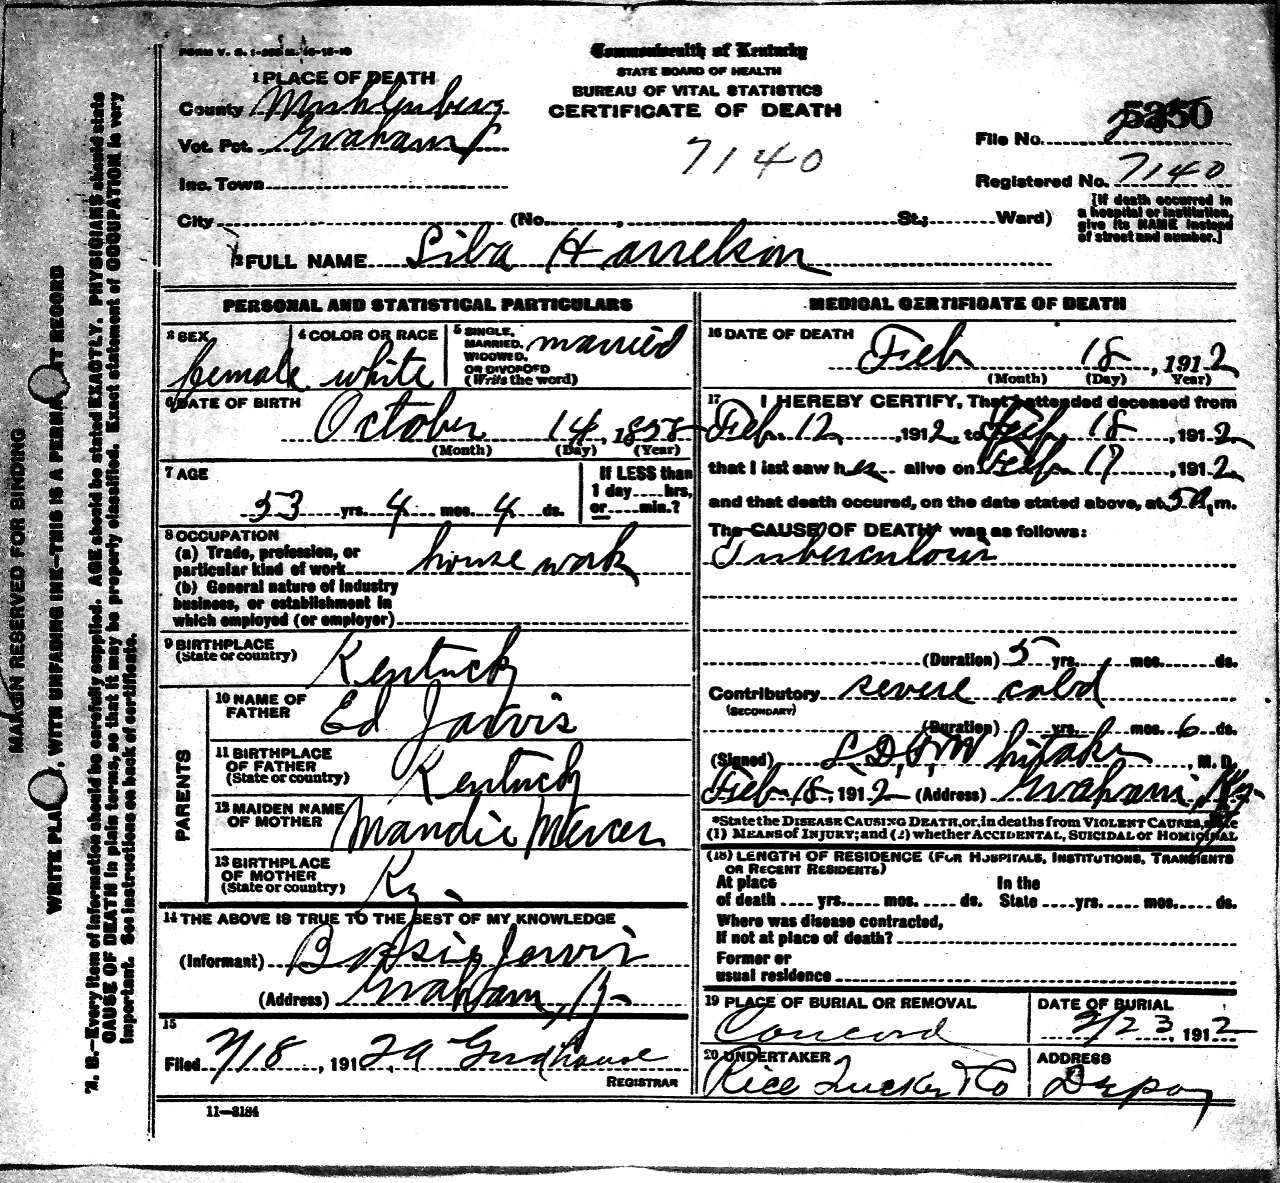 FORM V. S. 1-
Commonwealth of Kentucky
STATE BOARD OF HEALTH
BUREAU OF VITAL STATISTICS
CERTIFICATE OF DEATH
1 PLACE OF DEATH
County Muhlenberg
Vot. Pct. Graham
Inc. Town
City (No. , St.; Ward)
7140
File No. 5250
Registered No. 7140
[If death occurred in
a hospital or institution,
give its NAME instead
of street and number.]
2 FULL NAME Siba Harrelson
PERSONAL AND STATISTICAL PARTICULARS
3 SEX
female
4 COLOR OR RACE
white
5 SINGLE,
MARRIED,
WIDOWED,
OR DIVORCED
(Write the word)
married
6 DATE OF BIRTH
October 14, 1858
(Month) (Day) (Year)
7 AGE
53 yrs. 4 mos. 4 ds.
If LESS than
1 day....hrs,
or.....min.?
8 OCCUPATION
(a) Trade, profession, or
particular kind of work house work
(b) General nature of industry
business, or establishment in
which employed (or employer)
9 BIRTHPLACE
(State or country)
Kentucky
PARENTS
10 NAME OF
FATHER
Ed Jarvis
11 BIRTHPLACE
OF FATHER
(State or country)
Kentucky
12 MAIDEN NAME
OF MOTHER
Mandie Mercer
13 BIRTHPLACE
OF MOTHER
(State or country)
Ky.
14 THE ABOVE IS TRUE TO THE BEST OF MY KNOWLEDGE
(Informant) Jarvis
(Address) Graham, Ky
15
Filed 2/18, 1912
REGISTRAR
11—3184
MEDICAL CERTIFICATE OF DEATH
16 DATE OF DEATH
Feb 18, 1912
(Month) (Day) Year)
17 I HEREBY CERTIFY, That I attended deceased from
Feb. 12, 1912, to Feb. 18, 1912,
that I last saw her alive on Feb. 17, 1912,
and that death occured, on the date stated above, at 5 A. m.
The CAUSE OF DEATH* was as follows:
Tuberculosis
(Duration) 5 yrs. mos. ds.
Contributory severe cold
(SECONDARY)
(Duration) yrs. mos. 6 ds.
(Signed) Whitaker, M. D.
Feb 18, 1912 (Address) Graham, Ky.
*State the DISEASE CAUSING DEATH, or, in deaths from VIOLENT CAUSES, state
(1) MEANS OF INJURY; and (2) whether ACCIDENTAL, SUICIDAL or HOMICIDAL
(18) LENGTH OF RESIDENCE (FOR HOSPITALS, INSTITUTIONS, TRANSIENTS
OR RECENT RESIDENTS)
At place In the
of death yrs. mos. ds. State yrs. mos. ds.
Where was disease contracted,
If not at place of death?
Former or
usual residence
19 PLACE OF BURIAL OR REMOVAL
Concord
DATE OF BURIAL
2/23 1912
20 UNDERTAKER
Rice Tucker & Co
ADDRESS
Depoy
MARGIN RESERVED FOR BINDING
WRITE PLAINLY, WITH UNFADING INK—THIS IS A PERMANENT RECORD
N. B.—Every item of information should be carefully supplied. AGE should be stated EXACTLY. PHYSICIANS should state
CAUSE OF DEATH in plain terms, so that it may be properly classified. Exact statement of OCCUPATION is very
important. See instructions on back of certificate.